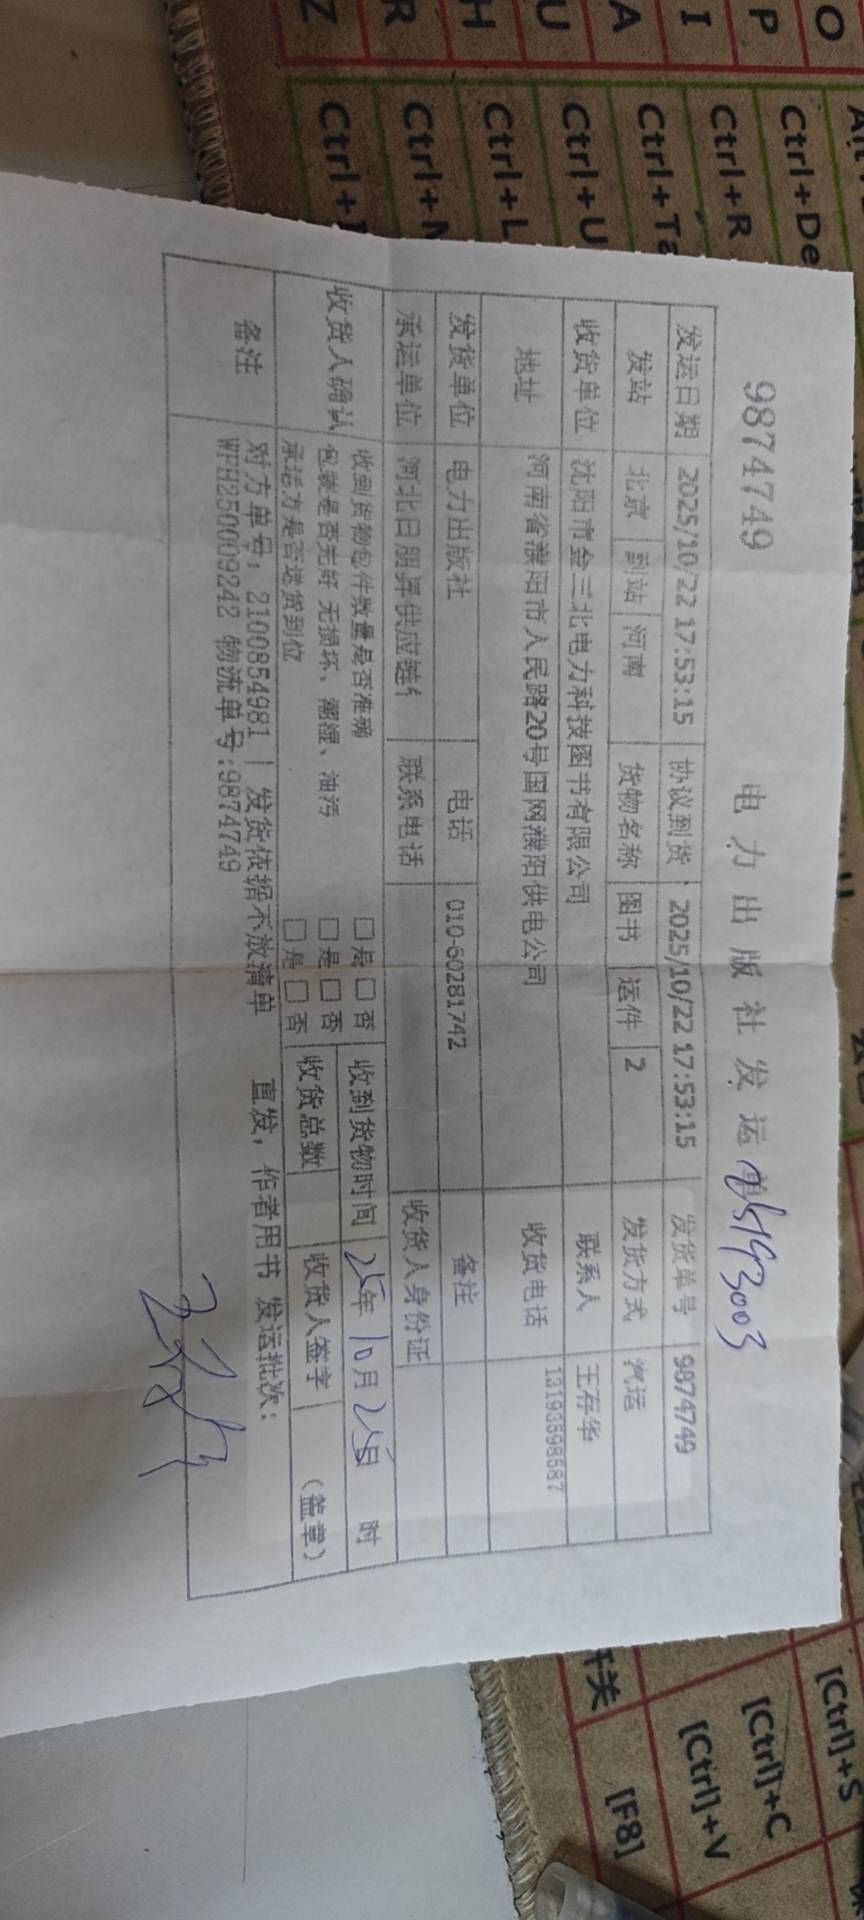 9874749
电力出版社发运单
发运日期 2025/10/22 17:53:15 协议到货: 2025/10/22 17:53:15 发货单号 9874749
发站 北京 到站 河南 货物名称 图书 运件 2 发货方式 汽运
收货单位 沈阳市金三北电力科技图书有限公司 联系人 王存华
地址 河南省濮阳市人民路20号国网濮阳供电公司 收货电话 13193598587
发货单位 电力出版社 电话 010-60281742 备注
承运单位 河北日朋昇供应链 联系电话 收货人身份证
收货人确认 收到货物包件数量是否准确 □是 □否 收到货物时间 25年10月25日 时
包装是否完好 无损坏、潮湿、油污 □是 □否
承运方是否送货到位 □是 □否 收货总数 收货人签字 (盖章)
备注 对方单号: 2100854981 | 发货依据不放清单 直发, 作者用书 发运批次:
WFH250009242 物流单号:9874749
O
P
I
A
U
H
R
Z
Ctrl+De
Ctrl+R
Ctrl+Ta
Ctrl+U
Ctrl+L
[Ctrl]+S
[Ctrl]+C
[Ctrl]+V
开关
[F8]